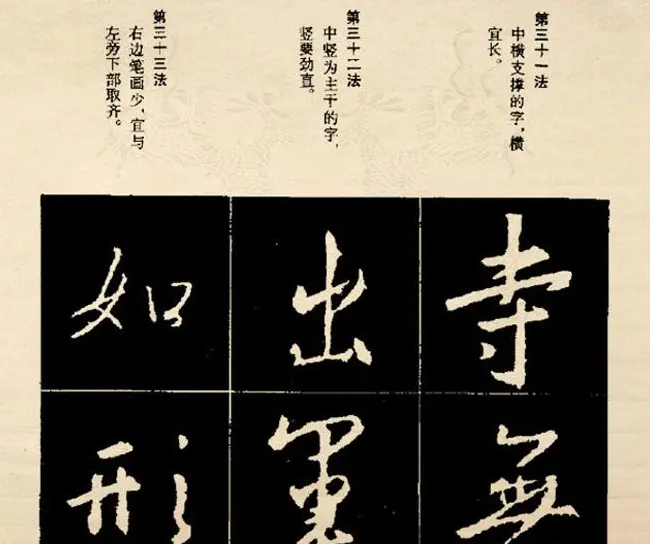 第三十一法
中横支撑的字，横
宜长。
第三十二法
中竖为主干的字，
竖要劲直。
第三十三法
右边笔画少，宜与
左旁下部取齐。
寺
無
出
墨
如
形